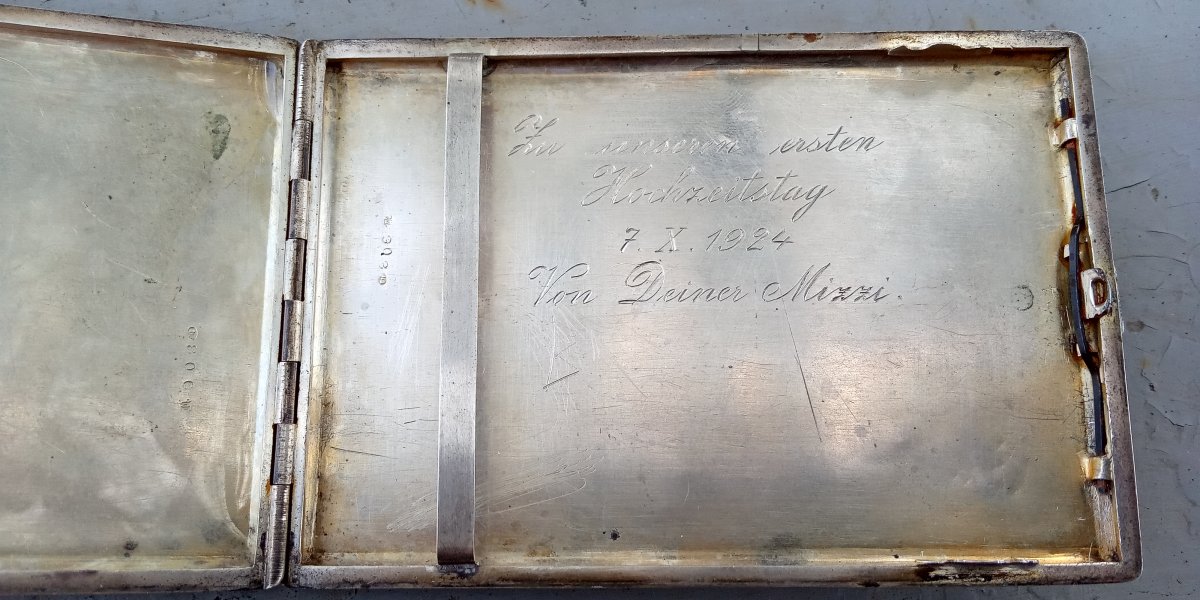 Zu unseren ersten
Hochzeitstag
7. X. 1924
Von Deiner Mizzi.